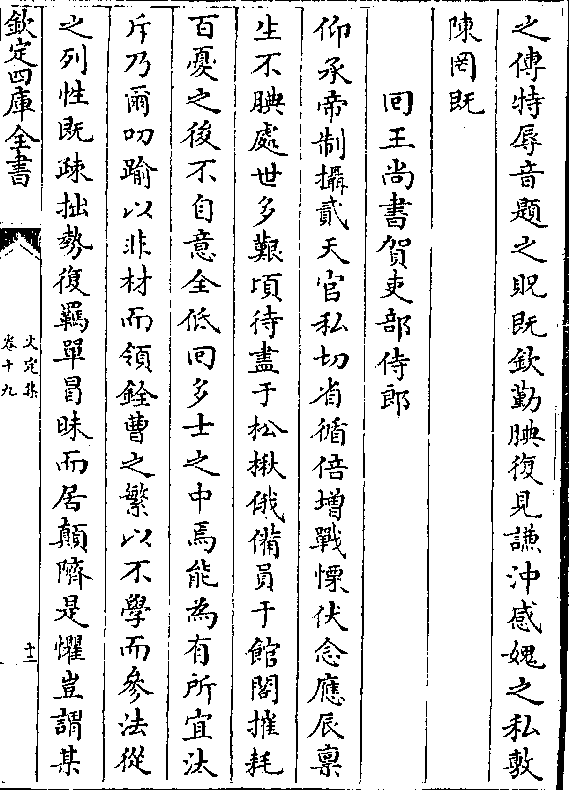 之傳特辱音題之貺既欽勤腆復見謙沖感媿之私敷
陳罔既
回王尚書賀吏部侍郎
仰承帝制攝貳天官私切省循倍增戰慄伏念應辰稟
生不腆處世多艱頃待盡于松楸俄備員于館閣摧耗
百憂之後不自意全低回多士之中焉能為有所宜汰
斥乃爾叨踰以非材而領銓曹之繁以不學而參法從
之列性既疎拙勢復羈單冒昧而居顛隮是懼豈謂某
欽定四庫全書
文定集
卷十九
十二